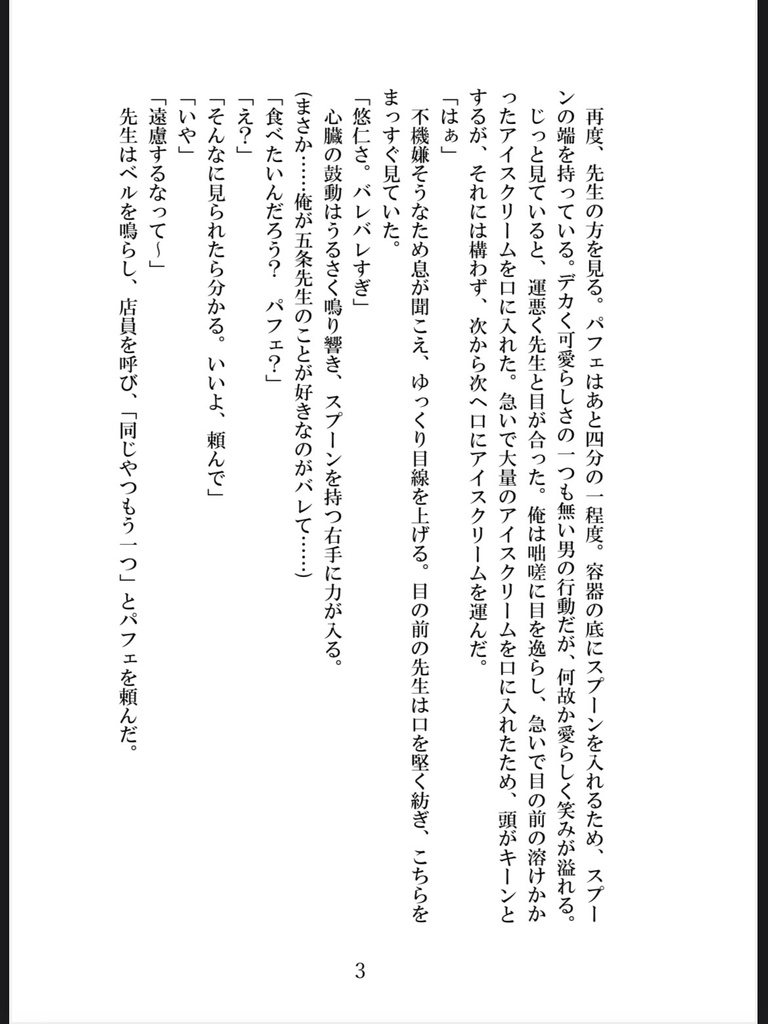 再度、先生の方を見る。パフェはあと四分の一程度。容器の底にスプーンを入れるため、スプー
ンの端を持っている。デカく可愛らしさの一つも無い男の行動だが、何故か愛らしく笑みが溢れる。
　じっと見ていると、運悪く先生と目が合った。俺は咄嗟に目を逸らし、急いで目の前の溶けかか
ったアイスクリームを口に入れた。急いで大量のアイスクリームを口に入れたため、頭がキーンと
するが、それには構わず、次から次へ口にアイスクリームを運んだ。
「はぁ」
　不機嫌そうなため息が聞こえ、ゆっくり目線を上げる。目の前の先生は口を堅く紡ぎ、こちらを
まっすぐ見ていた。
「悠仁さ。バレバレすぎ」
　心臓の鼓動はうるさく鳴り響き、スプーンを持つ右手に力が入る。
(まさか……俺が五条先生のことが好きなのがバレて……)
「食べたいんだろう？　パフェ？」
「え？」
「そんなに見られたら分かる。いいよ、頼んで」
「いや」
「遠慮するなって～」
　先生はベルを鳴らし、店員を呼び、「同じやつもう一つ」とパフェを頼んだ。
3